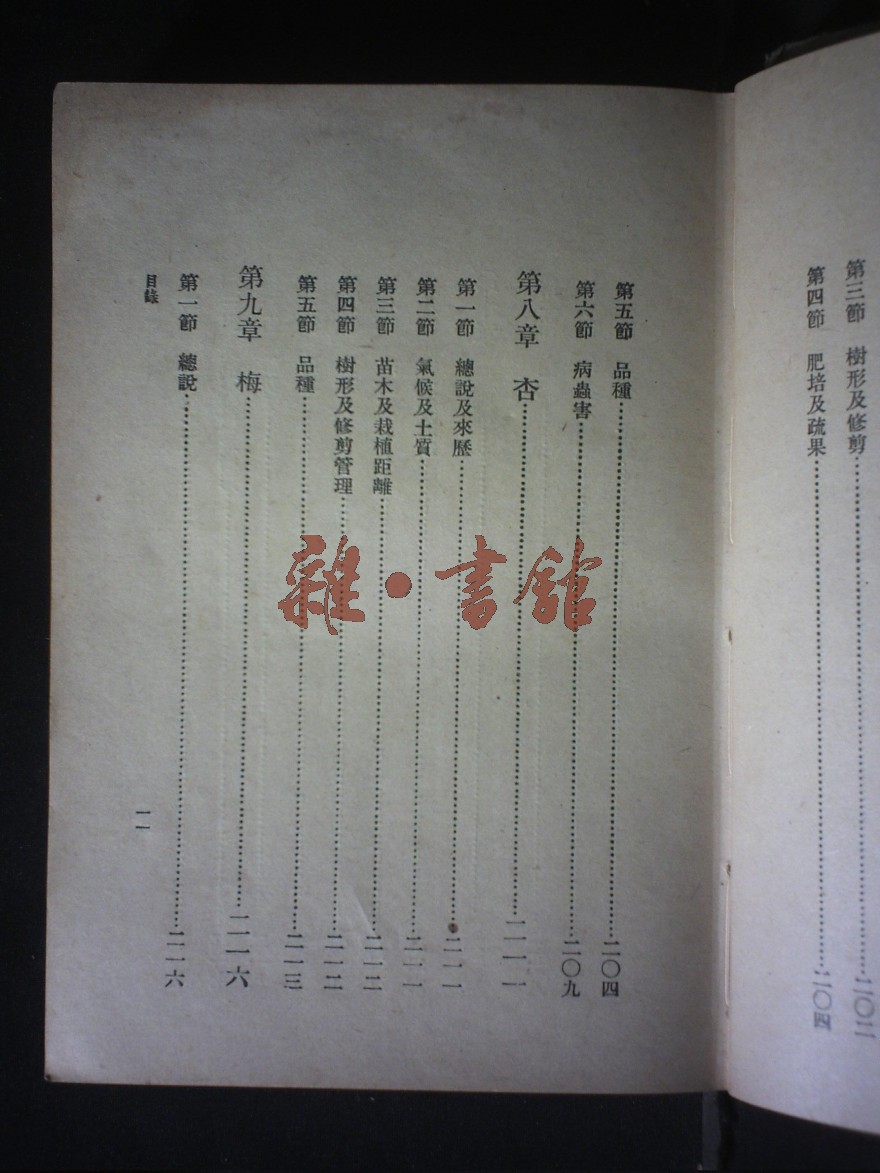 第三節 樹形及修剪……二〇二
第四節 肥培及疏果……二〇四
第五節 品種……二〇四
第六節 病蟲害……二〇九
第八章 杏……二一一
第一節 總說及來歷……二一一
第二節 氣候及土質……二一一
第三節 苗木及栽植距離……二一二
第四節 樹形及修剪管理……二一二
第五節 品種……二一三
第九章 梅……二一六
第一節 總說……二一六
目錄
一一
雜·書館